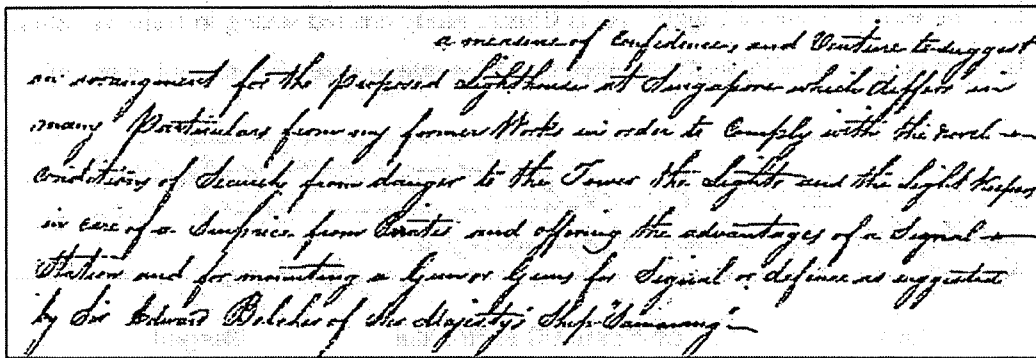 a measure of Confidence, and Venture to suggest
an arrangment for the proposed Lighthouse at Singapore which differs in
many Particulars from my former Works in order to Comply with the novel
Conditions of Security from danger to the Tower the Lights and the Light Keepers
in case of a Surprise from Pirates and offering the advantages of a Signal
Station and for mounting a Gun or Guns for Signal or defence as suggested
by Sir Edward Belcher of Her Majesty's Ship "Samarang"